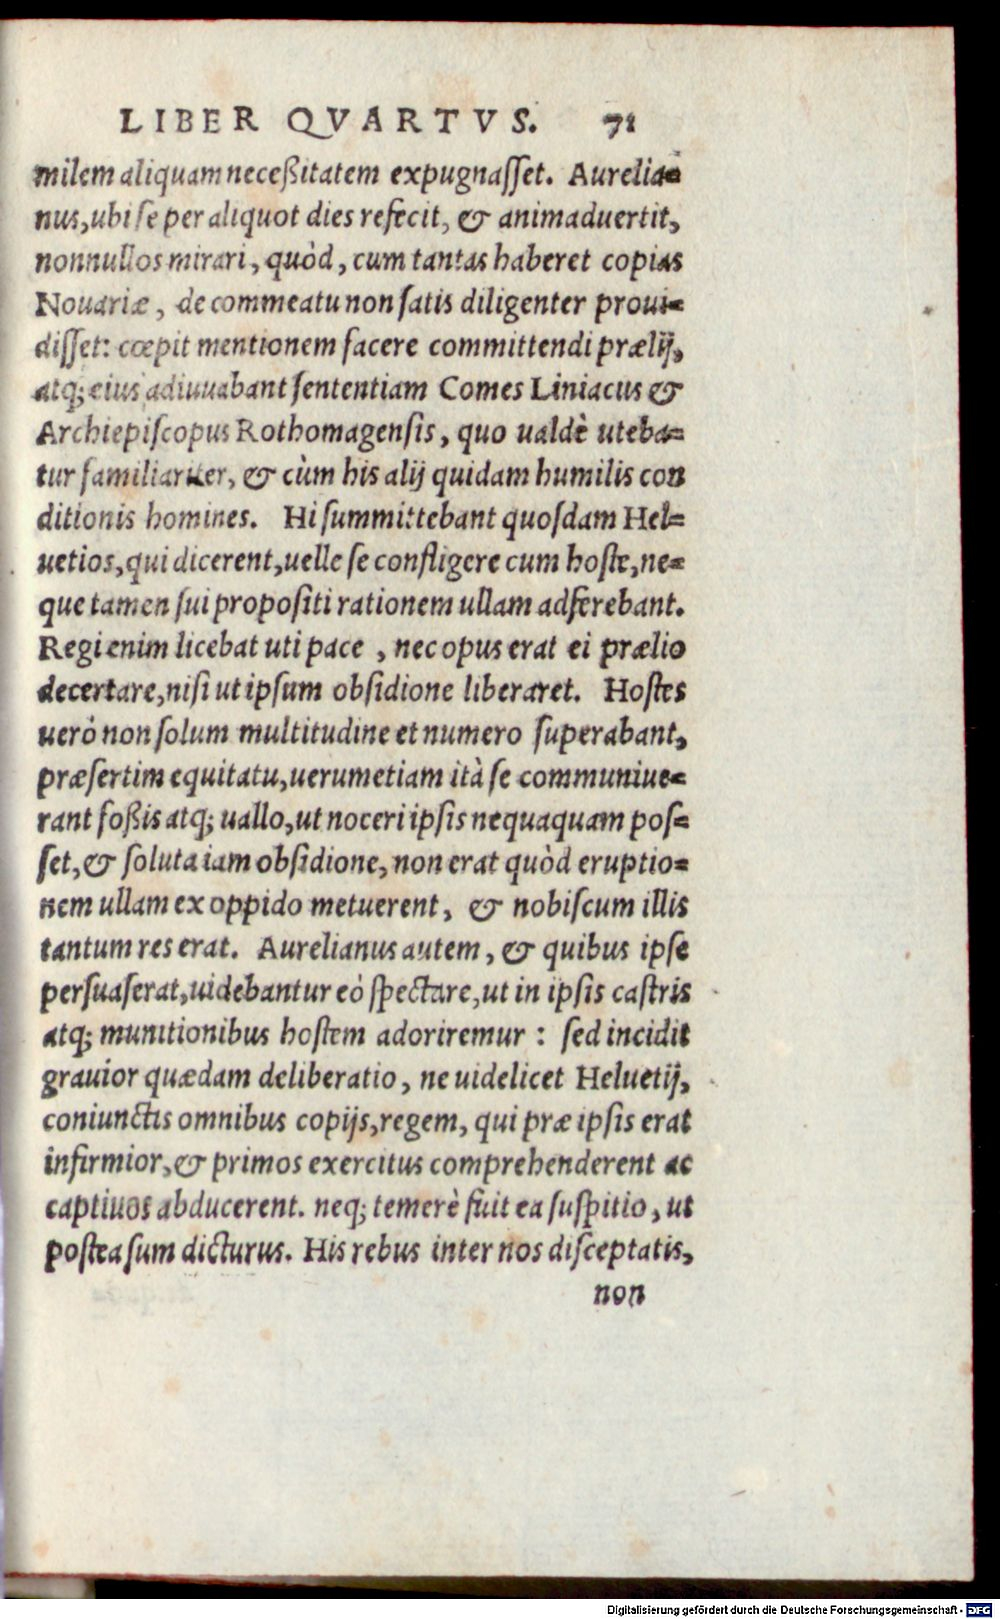 LIBER QVARTVS. 71
milem aliquam neceßitatem expugnasset. Aurelia=
nus, ubi se per aliquot dies refecit, & animaduertit,
nonnullos mirari, quòd, cum tantas haberet copias
Nouariæ, de commeatu non satis diligenter proui=
disset: cœpit mentionem facere committendi prælij,
atq; eius adiuuabant sententiam Comes Liniacus &
Archiepiscopus Rothomagensis, quo ualdè uteba=
tur familiariter, & cùm his alij quidam humilis con
ditionis homines. Hi summittebant quosdam Hel=
uetios, qui dicerent, uelle se confligere cum hoste, ne=
que tamen sui propositi rationem ullam adferebant.
Regi enim licebat uti pace, nec opus erat ei prælio
decertare, nisi ut ipsum obsidione liberaret. Hostes
uerò non solum multitudine et numero superabant,
præsertim equitatu, uerumetiam ità se communiue=
rant foßis atq; uallo, ut noceri ipsis nequaquam pos=
set, & soluta iam obsidione, non erat quòd eruptio=
nem ullam ex oppido metuerent, & nobiscum illis
tantum res erat. Aurelianus autem, & quibus ipse
persuaserat, uidebantur eò spectare, ut in ipsis castris
atq; munitionibus hostem adoriremur: sed incidit
grauior quædam deliberatio, ne uidelicet Heluetij,
coniunctis omnibus copijs, regem, qui præ ipsis erat
infirmior, & primos exercitus comprehenderent ac
captiuos abducerent. neq; temerè fuit ea suspitio, ut
postea sum dicturus. His rebus inter nos disceptatis,
non
Digitalisierung gefördert durch die Deutsche Forschungsgemeinschaft - DFG